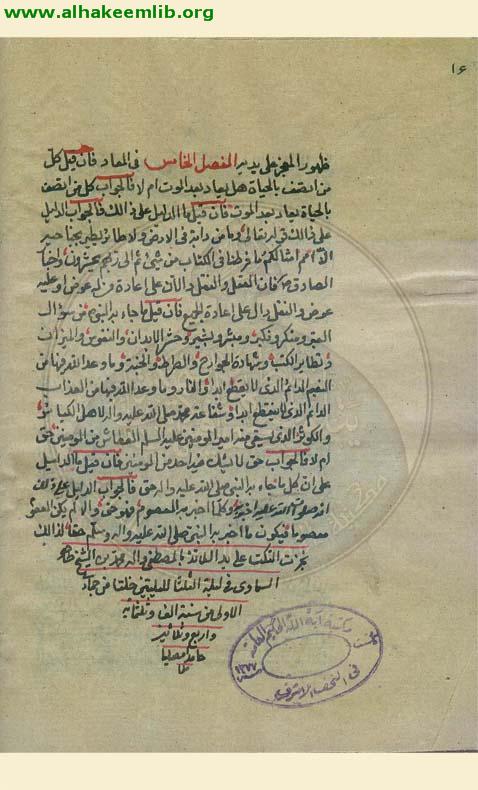 www.alhakeemlib.org
١٤
ظهور المعجز على يديه الفصل الخامس في المعاد فان قيل كل
من اتصف بالحياة هل يعاد بعد الموت ام لا فالجواب كل من اتصف
بالحياة يعاد بعد الموت فان قيل ما الدليل على ذالك فالجواب الدليل
على ذالك قوله تعالى وما من دابة في الارض ولا طائر يطير بجناحيه
الا امم امثالكم ما فرطنا في الكتاب من شئ ثم الى ربهم يحشرون
فان العقل والنقل دالان على اعادة من له عوض وعليه
عوض والنقل دال على اعادة الجميع فان قيل ما جاء به النبي من سؤال
القبر ومنكر ونكير ومبشر وبشير وحشر الابدان والنفوس والميزان
وتطاير الكتب وشهادة الجوارح والصراط والجنة وما وعد الله فيها من
النعيم الدائم الذي لا ينقطع ابدا والنار وما وعد الله فيها من العذاب
الدائم الذي لا ينقطع ابدا وشفاعة محمد صلى الله عليه واله لاهل الكبائر
والكوثر الذي يسقي منه امير المومنين عليه السلم العطاش من المومنين حق
ام لا فالجواب حق لا يشك فيه احد من المومنين فان قيل ما الدليل
على ان كل ما جاء به النبي صلى الله عليه واله حق فالجواب الدليل على ذالك
انه معصوم وكلما اخبر به المعصوم فهو حق والا لم يكن المعصوم
معصوما فيكون ما اخبر به النبي صلى الله عليه واله وسلم حقا لذالك
نجزت النكت على يد اللائذ بالمصطفى واله محمد بن الشيخ طاهر
السماوي في ليلة الثلثا لليلتين خلتا من جمادى
الاولى من سنة الف وثلثمائة
واربع وثلاثين
حامدا مصليا
مكتبة اية الله الحكيم العامة
في النجف الاشرف
١٣٧٧